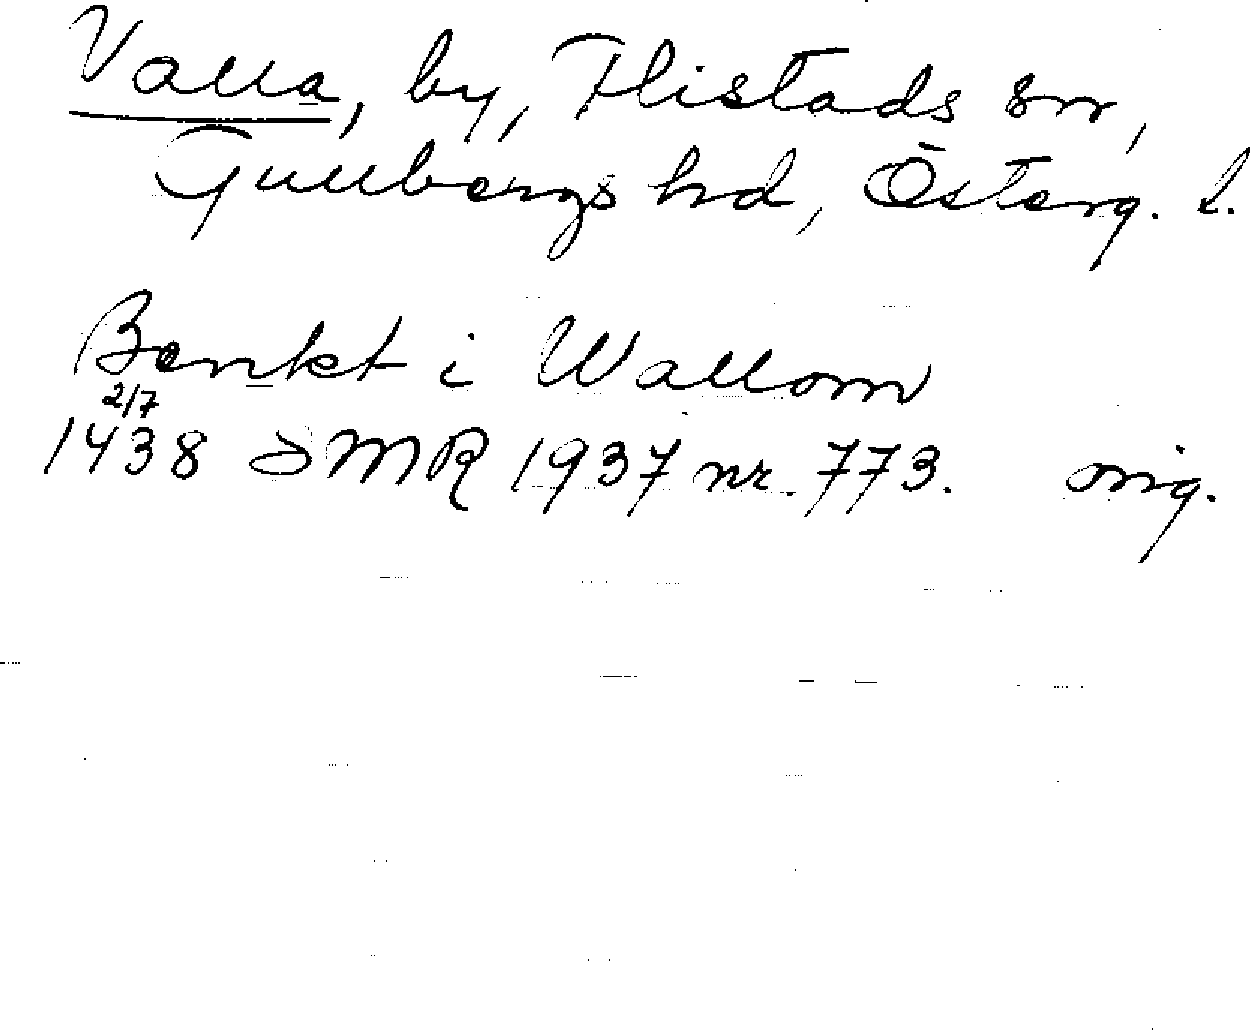 Valla, by, Flistads sn,
Gullbergs hd, Österg. l.
Benkt i Wallom
2/7
1438 SMR 1937 nr. 773. orig.